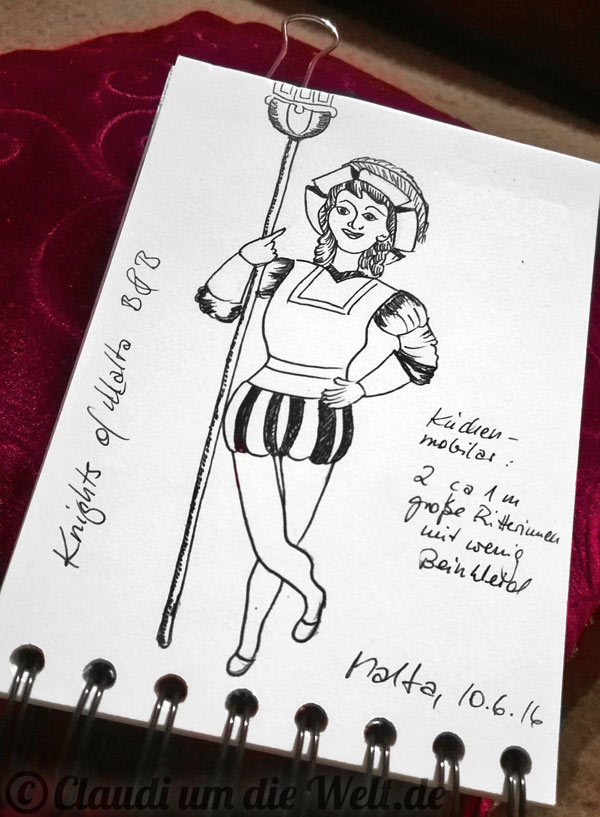 Knights of Malta B&B
Küchen-
mobilar:
2 ca 1m
große Ritterinnen
mit wenig
Beinkleid
Malta, 10.6.16
© Claudi um die Welt.de